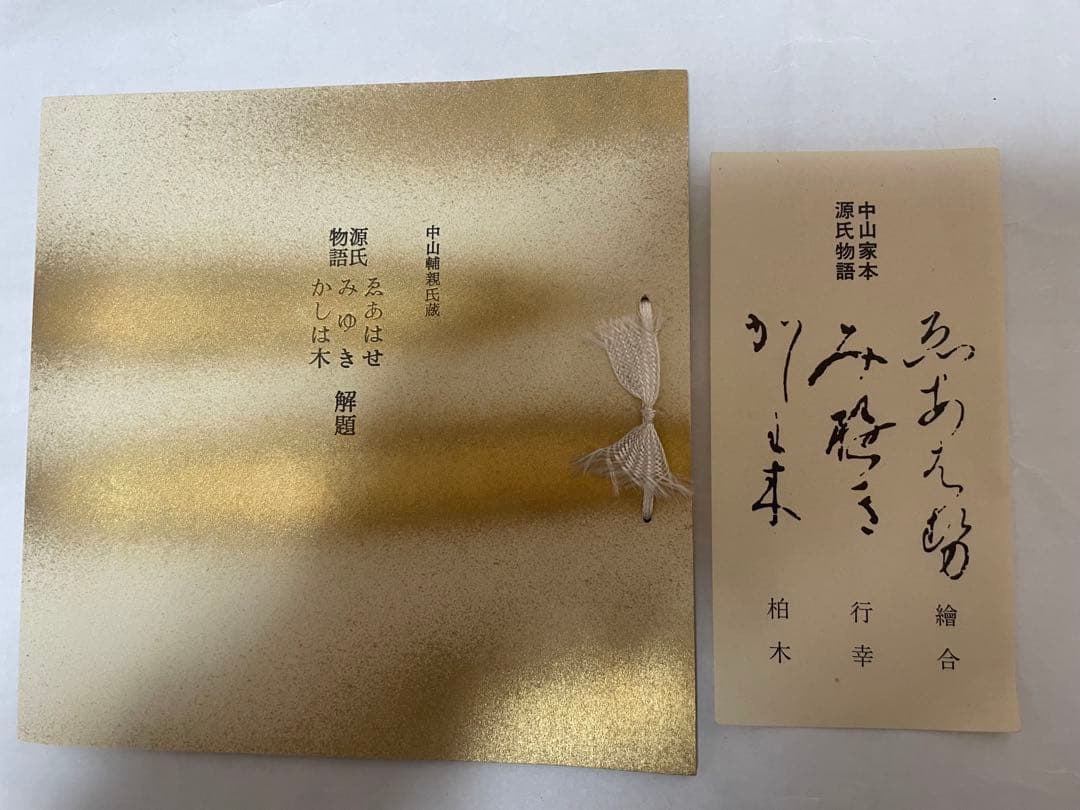 中山輔親氏蔵
源氏物語
ゑあはせ
みゆき
かしは木
解題
中山家本
源氏物語
ゑあはせ
繪合
みゆき
行幸
かしは木
柏木